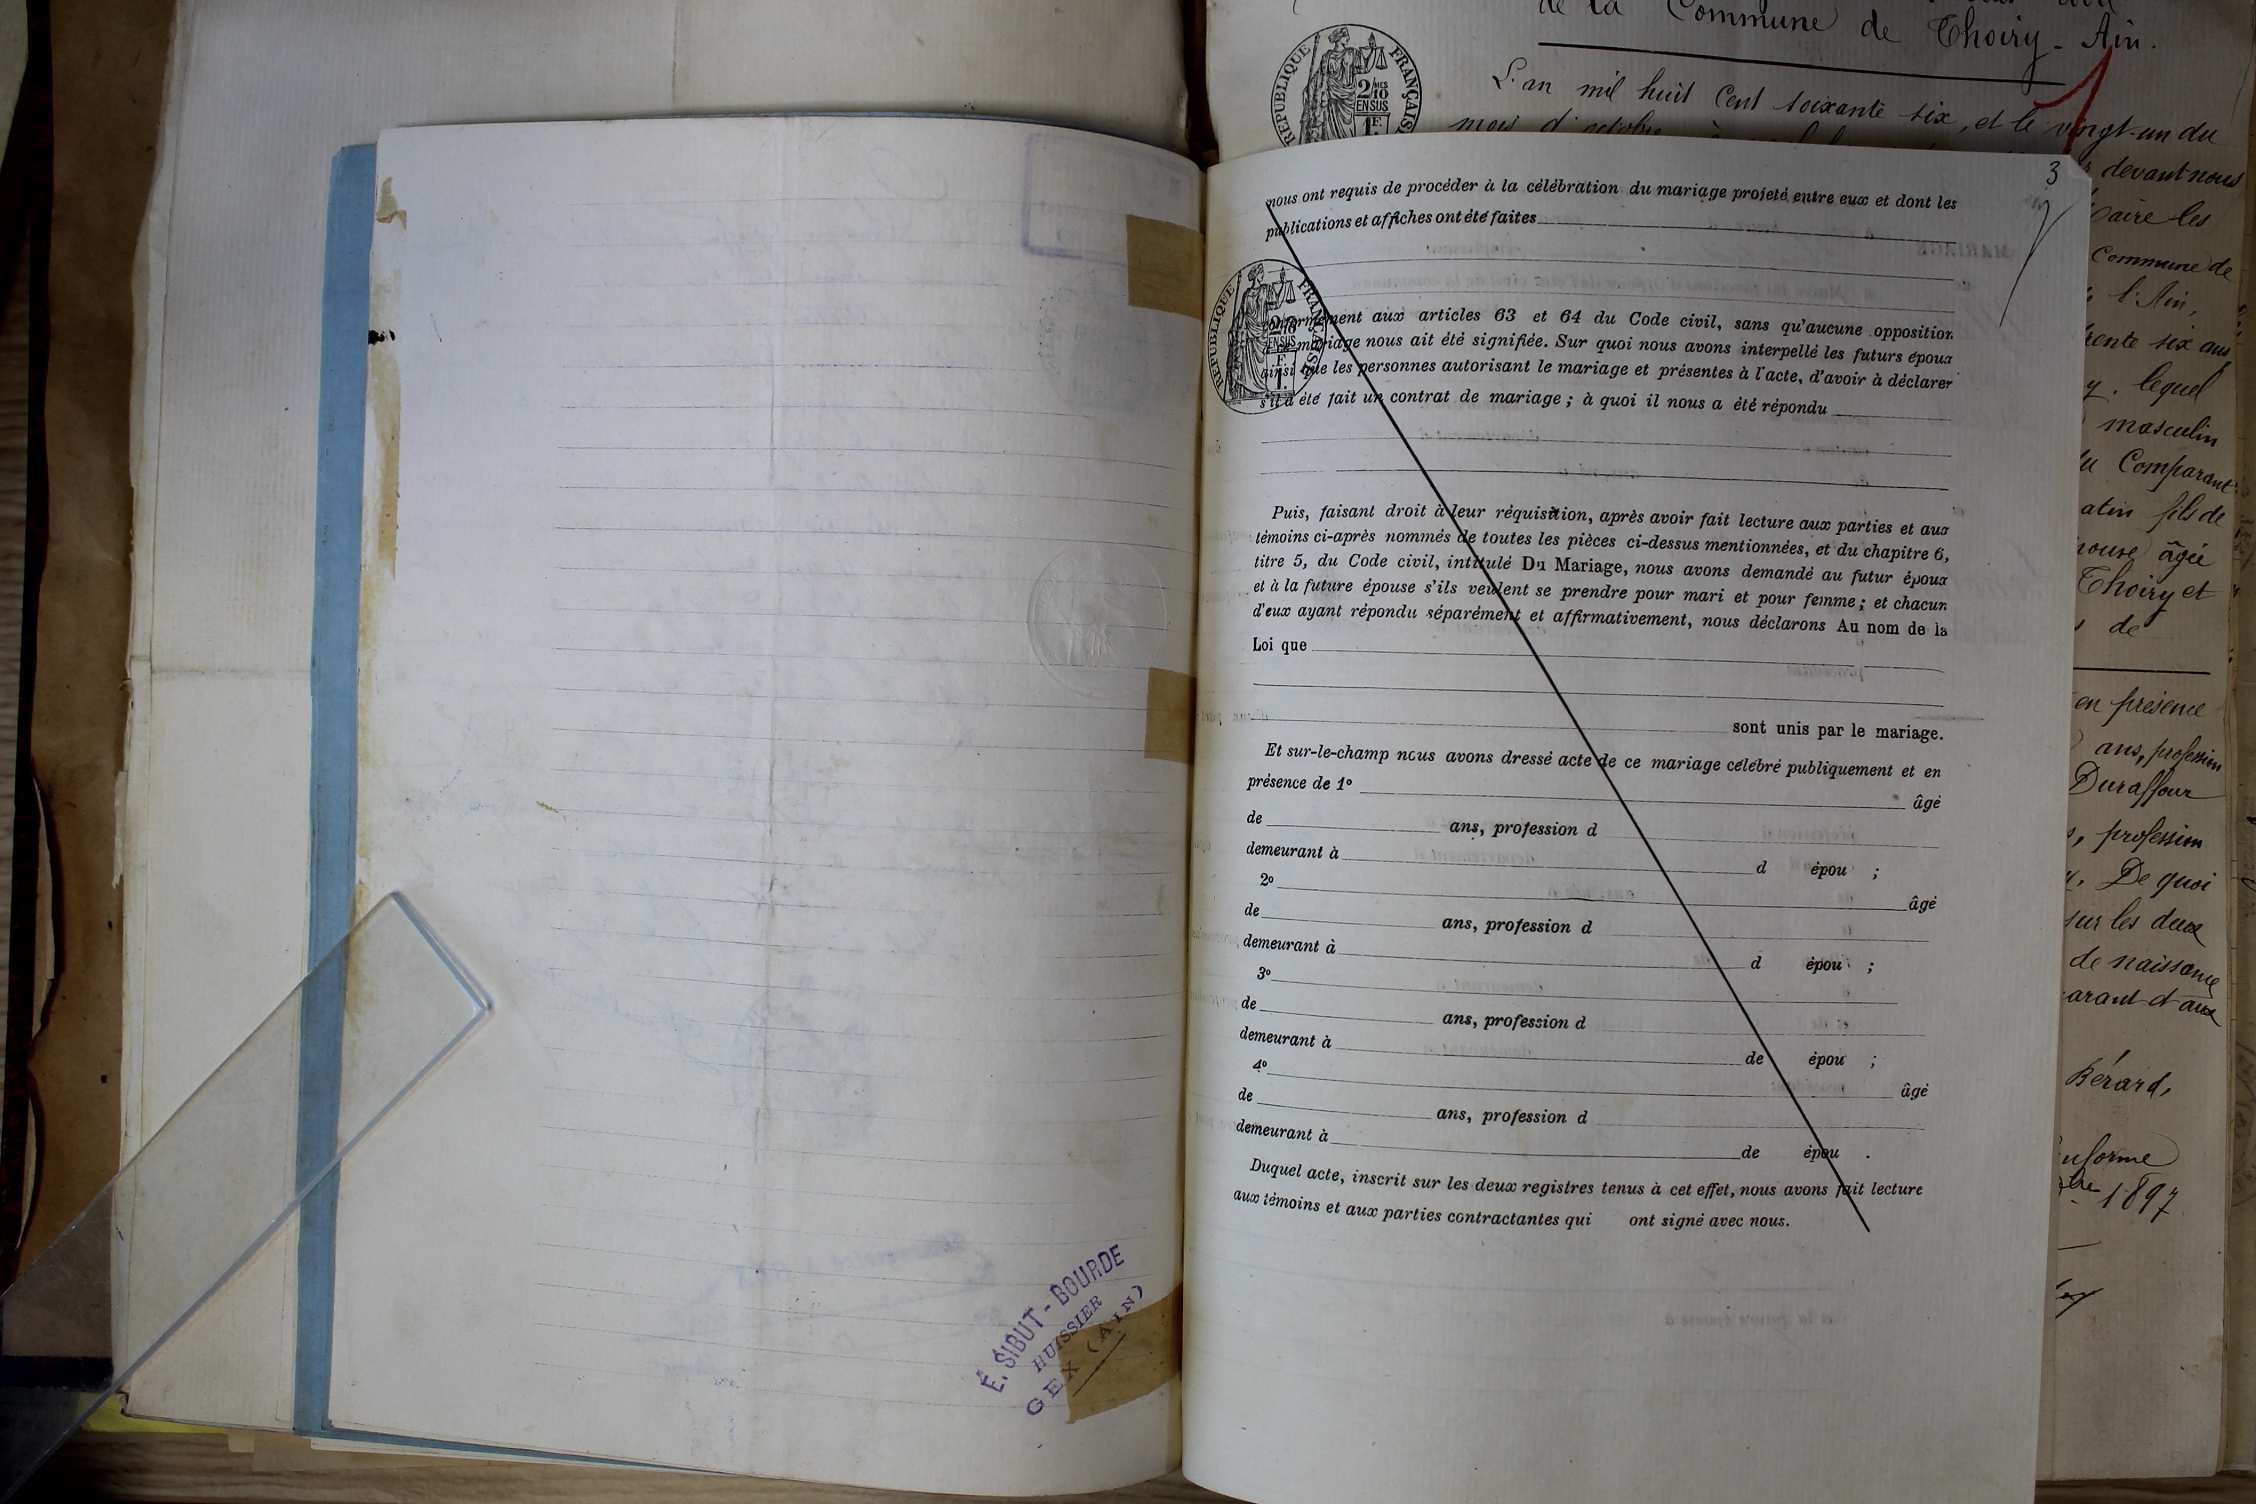 É. SIBUT-BOURDE
HUISSIER
GEX (AIN)
de la Commune de Thoiry - Ain.
RÉPUBLIQUE FRANÇAISE
2/10 MES
EN SUS
1 F.
L'an mil huit cent soixante six, et le vingt-un du
mois d'octobre
devant nous
les
Commune de
l'Ain,
trente six ans
lequel
masculin
du Comparant
fils de
âgée
Thoiry et
de
en présence
ans, profession
Duraffour
profession
De quoi
sur les deux
de naissance
Bérard,
1897
3
nous ont requis de procéder à la célébration du mariage projeté entre eux et dont les
publications et affiches ont été faites
RÉPUBLIQUE FRANÇAISE
2/10
EN SUS
1 F.
conformément aux articles 63 et 64 du Code civil, sans qu'aucune opposition
mariage nous ait été signifiée. Sur quoi nous avons interpellé les futurs époux
ainsi que les personnes autorisant le mariage et présentes à l'acte, d'avoir à déclarer
s'il a été fait un contrat de mariage ; à quoi il nous a été répondu
Puis, faisant droit à leur réquisition, après avoir fait lecture aux parties et aux
témoins ci-après nommés de toutes les pièces ci-dessus mentionnées, et du chapitre 6,
titre 5, du Code civil, intitulé Du Mariage, nous avons demandé au futur époux
et à la future épouse s'ils veulent se prendre pour mari et pour femme ; et chacun
d'eux ayant répondu séparément et affirmativement, nous déclarons Au nom de la
Loi que
sont unis par le mariage.
Et sur-le-champ nous avons dressé acte de ce mariage célébré publiquement et en
présence de 1º âgé
de ans, profession d
demeurant à d épou ;
2º âgé
de ans, profession d
demeurant à d épou ;
3º
de ans, profession d
demeurant à de épou ;
4º âgé
de ans, profession d
demeurant à de épou .
Duquel acte, inscrit sur les deux registres tenus à cet effet, nous avons fait lecture
aux témoins et aux parties contractantes qui ont signé avec nous.